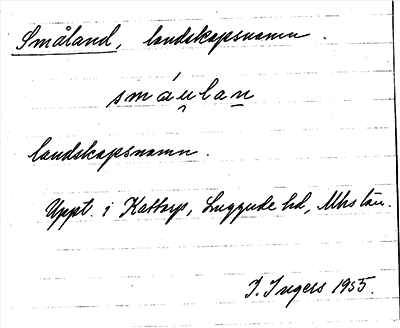 Småland, landskapsnamn.
smáu̯lan
landskapsnamn.
Uppt. i Kattarp, Luggude hd, Mhs län.
I. Ingers 1955.